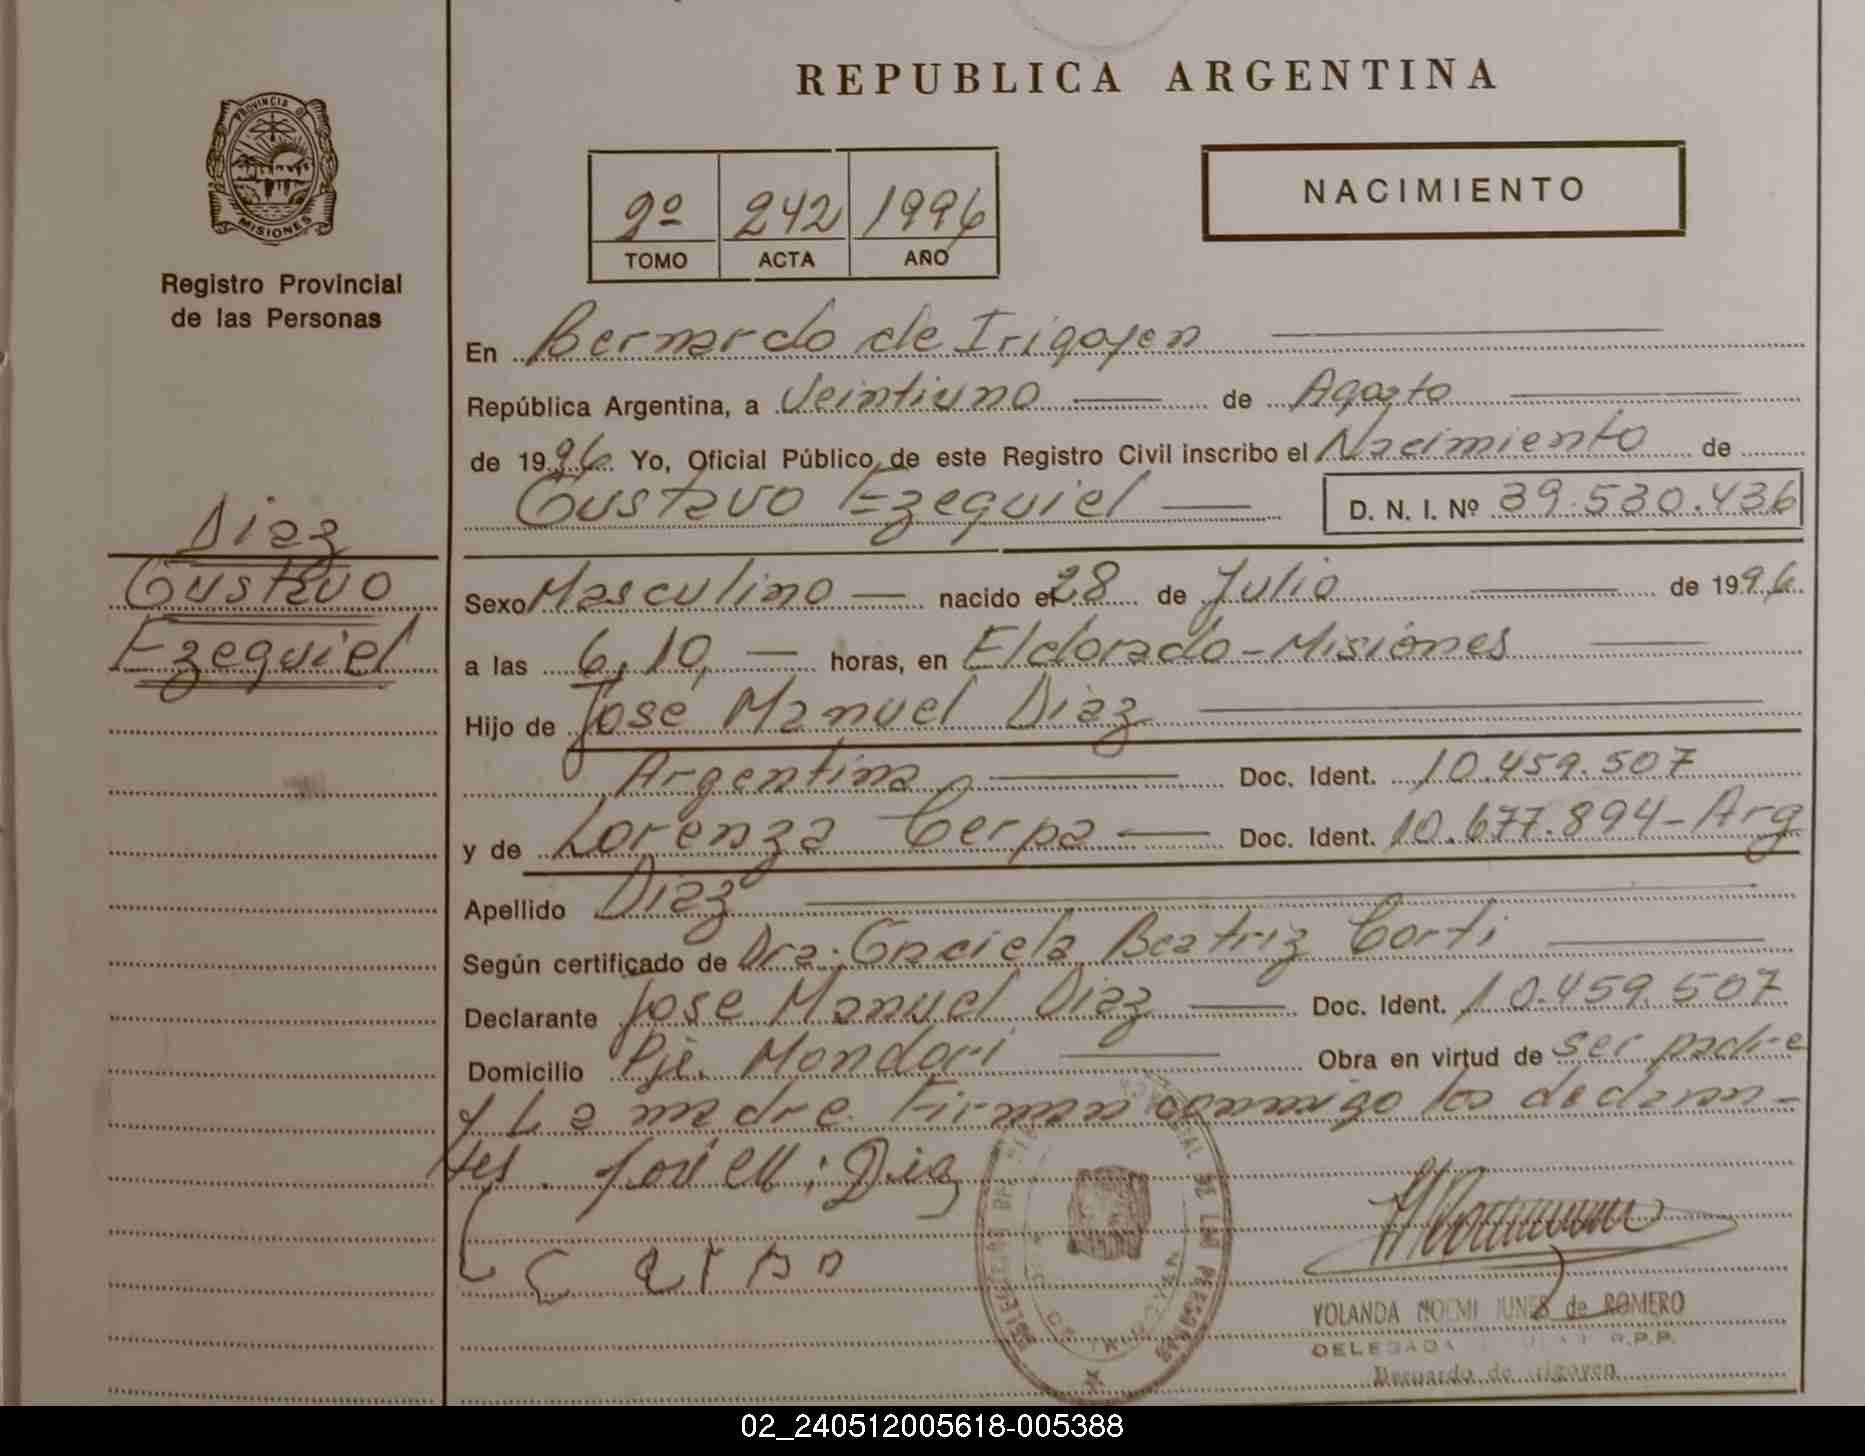 REPUBLICA ARGENTINA
PROVINCIA D
MISIONES
Registro Provincial
de las Personas
2º 242 1996
TOMO ACTA AÑO
NACIMIENTO
En Bernardo de Irigoyen
República Argentina, a Veintiuno de Agosto
de 1996 Yo, Oficial Público, de este Registro Civil inscribo el Nacimiento de
Gustavo Ezequiel D. N. I. Nº 39.530.436
Diaz
Gustavo
Ezequiel
Sexo Masculino nacido el 28 de Julio de 1996
a las 6,10 horas, en Eldorado-Misiones
Hijo de José Manuel Diaz
Argentina Doc. Ident. 10.459.507
y de Lorenza Cerpa Doc. Ident. 10.677.894-Arg
Apellido Diaz
Según certificado de Dra. Graciela Beatriz Corti
Declarante Jose Manuel Diaz Doc. Ident. 10.459.507
Domicilio Pje. Mondori Obra en virtud de ser padre
y La madre. Firman conmigo los declaran-
tes. José M. Diaz
L Cerpa
DE LAS PERSONAS
YOLANDA NOEMI de ROMERO
DELEGADA R.P.P.
Bernardo de Irigoyen
02_240512005618-005388